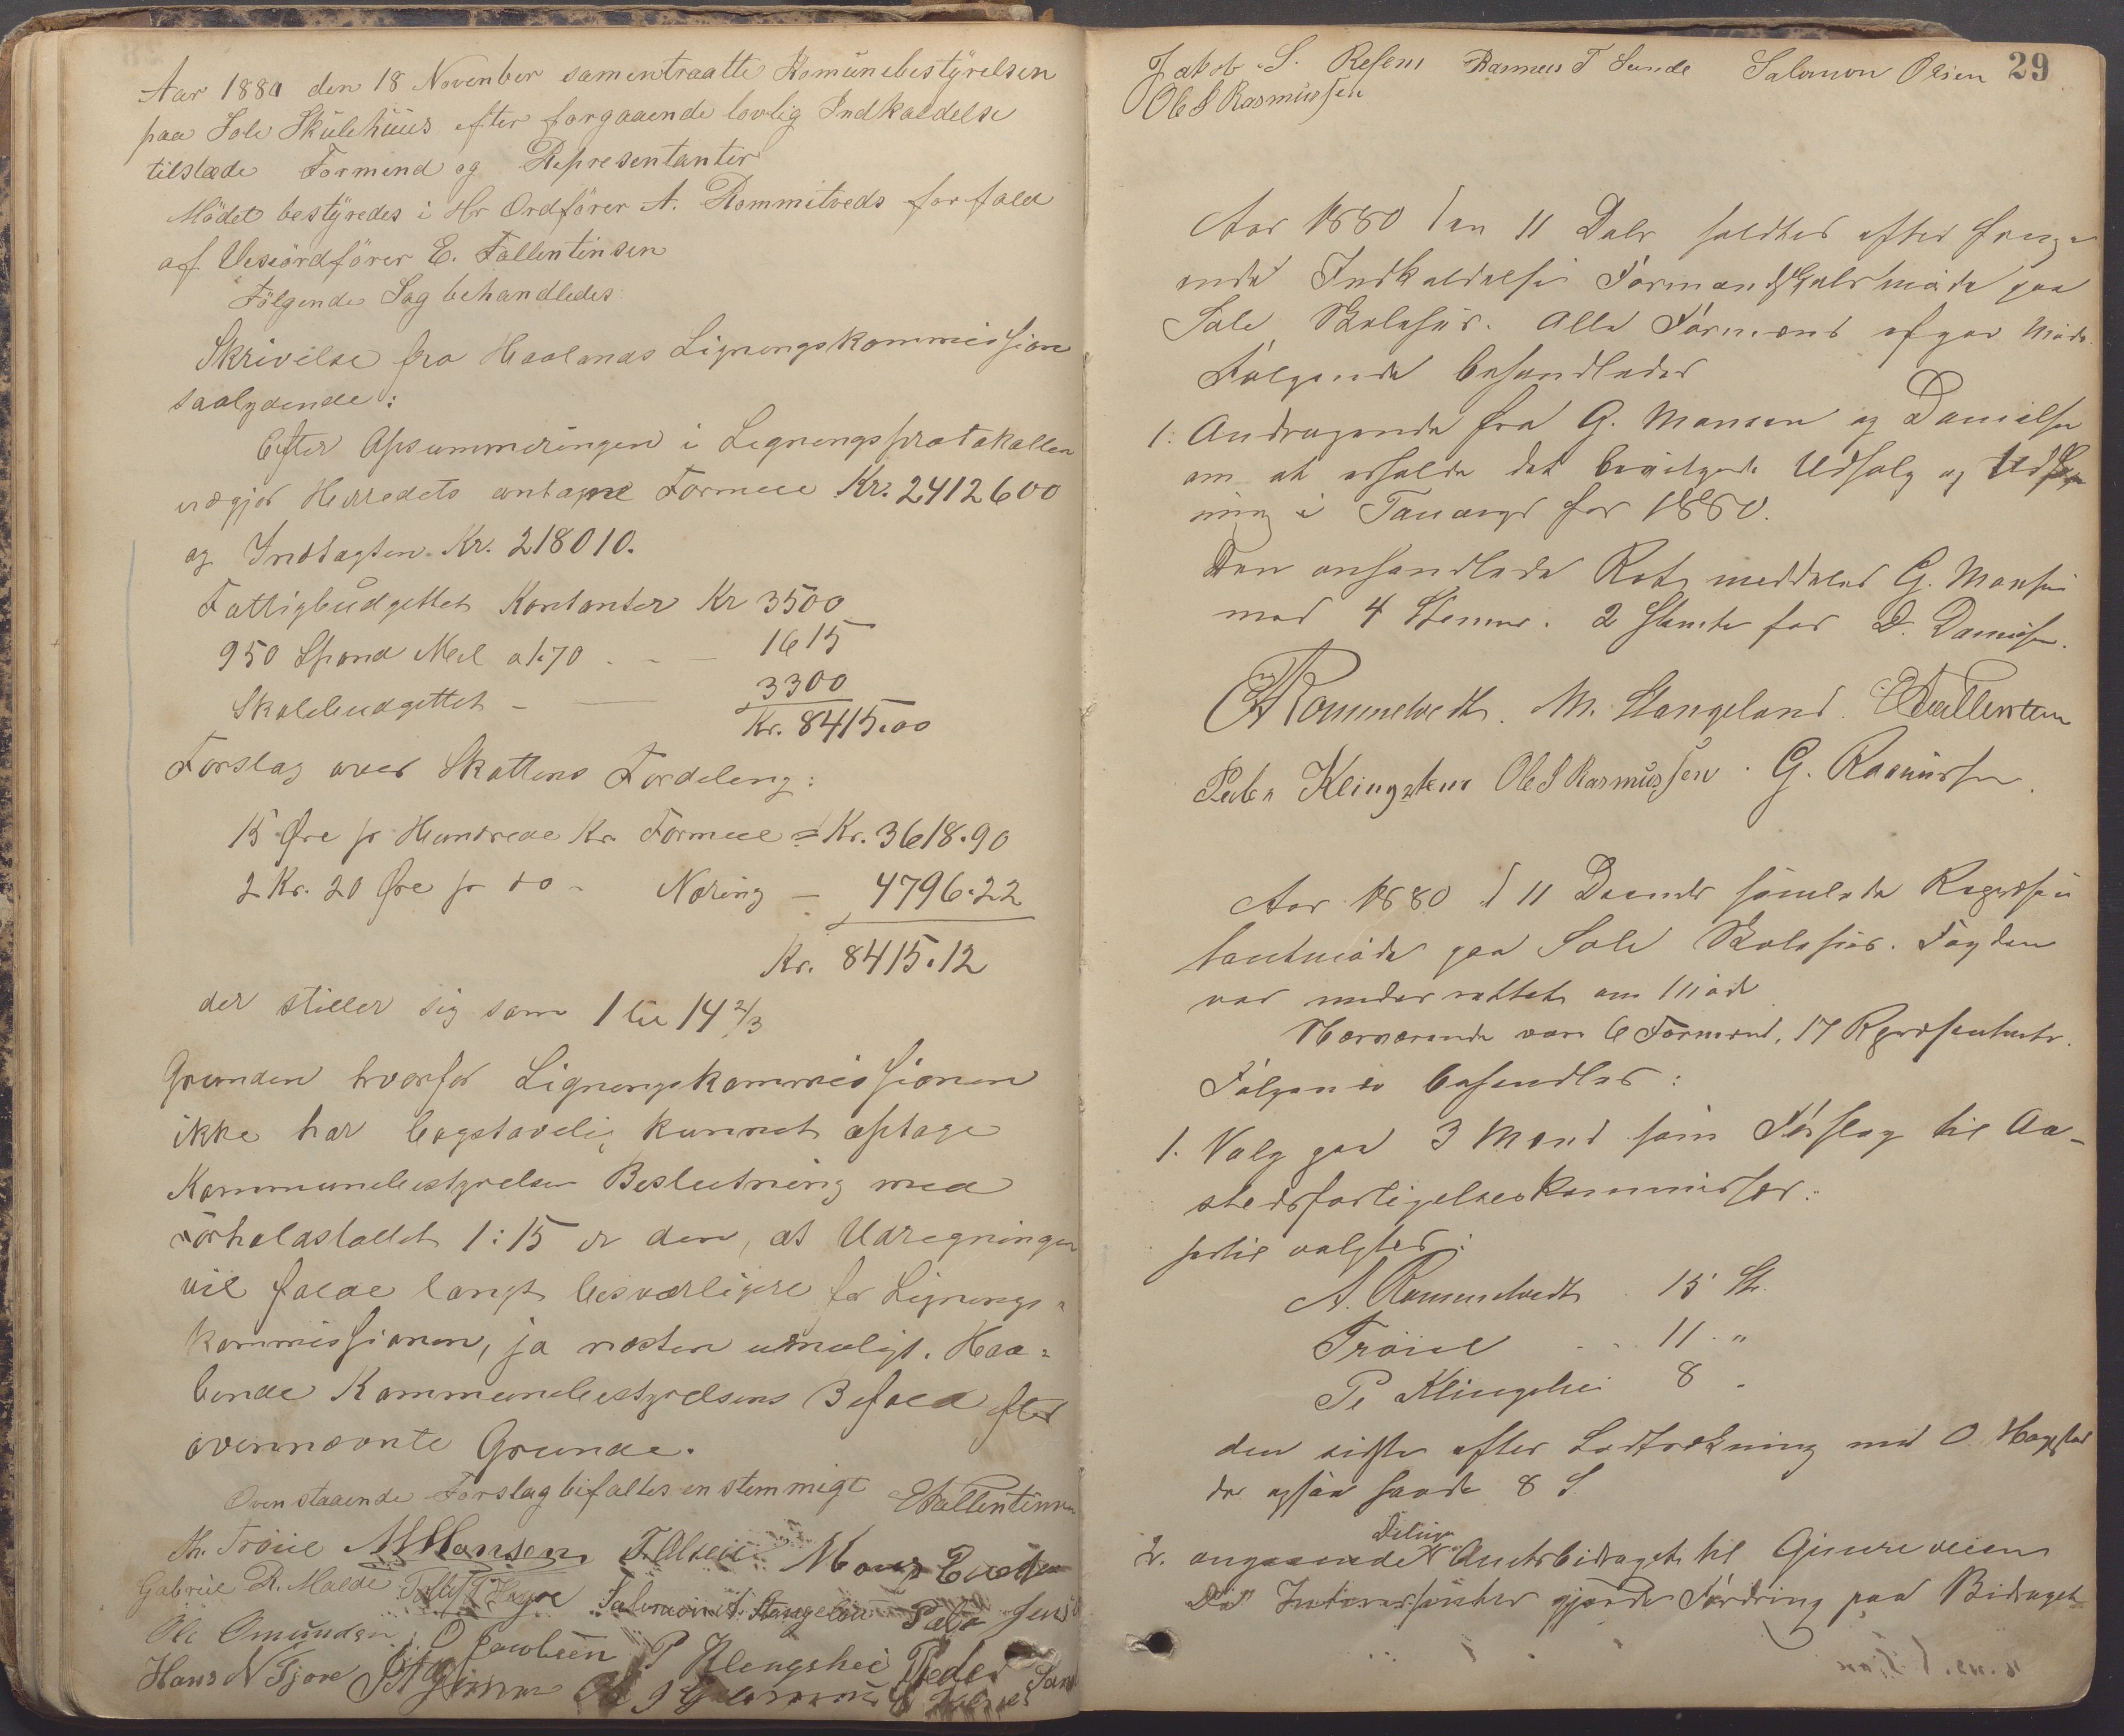 Aar 1880 den 18 November samentraatte Komünebestÿrelsen
paa Sole Skülehüüs efter forgaaende lovlig Indkaldelse
tilstæde Formend og Representanter
Mödet bestÿredes i Hr Ordförer A. Rommetveds forfald
af Viseördförer E. Fallentinsen
Fölgende Sag behandledes
Skrivelse fra Haalands Ligningskommission
saalydende:
Efter Opsummeringen i Ligningsprotokollen
udgjør Herredets antagne Formue Kr. 2412600
og Indtægten Kr. 218010.
Fattigbudgettet Kontanter Kr 3500
950 Spand Mel a 1.70 - - - 1615
Skolebudgettet - — 3300
Kr. 8415.00
Forslag over Skattens Fordeling:
15 Øre pr Hundrede Kr. Formue = Kr. 3618.90
2 Kr. 20 Øre pr do - Næring — 4796.22
Kr. 8415.12
der stiller sig som 1 til 14 2/3
Grunden hvorfor Ligningskommissionen
ikke har bogstavelig kunnet optage
Kommunebestyrelsen Beslutning med
Forholdstallet 1:15 er den, at Udregningen
vil falde langt besværligere for Lignings-
kommissionen, ja næsten umuligt. Haa-
bende Kommunebestyrelsens Bifald efter
ovennævnte Grunde.
Ovenstaaende Forslag bifaltes enstemmigt E Fallentinsen
Th. Tröiel M Hansen T. Olsen Mons
Gabriel R. Malde Tollef T Hagre Salomon S. Stangeland Peder Jens
Ole Omundsen O Jacobsen P Klengshei Peder
Hans N Tjore
29
Jakob S. Resens Rasmus T Sunde Salomon Olsen
Ole S Rasmussen
Aar 1880 den 11 Debr holdtes efter foreg-
ende Indkaldelse Formandskabsmöde paa
Sole Skolehus. Alle Formænd afgav Möde.
Fölgende behandledes
1. Andragende fra G. Monsen og Danielsen
om at erholde det bevilgede Udsalg og Udskjænk-
ning i Tananger for 1880.
Den omhandlede Ret meddeles G. Monsen
mod 4 Stemmer. 2 stemte for D. Danielsen.
A Rommetvedt. M. Stangeland. E Fallentinsen
Peder Klingsheim Ole S Rasmussen. G. Rasmussen.
Aar 1880 d 11 Decembr samlede Repræsen
tantmöde paa Sole Skolehus. Fogden
var underrettet om Möde
Nærværende var 6 Formænd, 17 Repræsentanter.
Fölgende behandles:
1. Valg paa 3 Mænd som Forslag til Aa-
stedsforligelseskommissær:
hertil valgtes:
A. Rommetvedt . 15 St.
Tröiel . . . 11 "
Pe Klingshei 8 "
den sidste efter Lodtrækning med O. Hagestad
der ogsaa havde 8 S
2. angaaende Deling Amtsbidraget til Gimreveien
Da Interessenter gjorde Fordring paa Bidraget